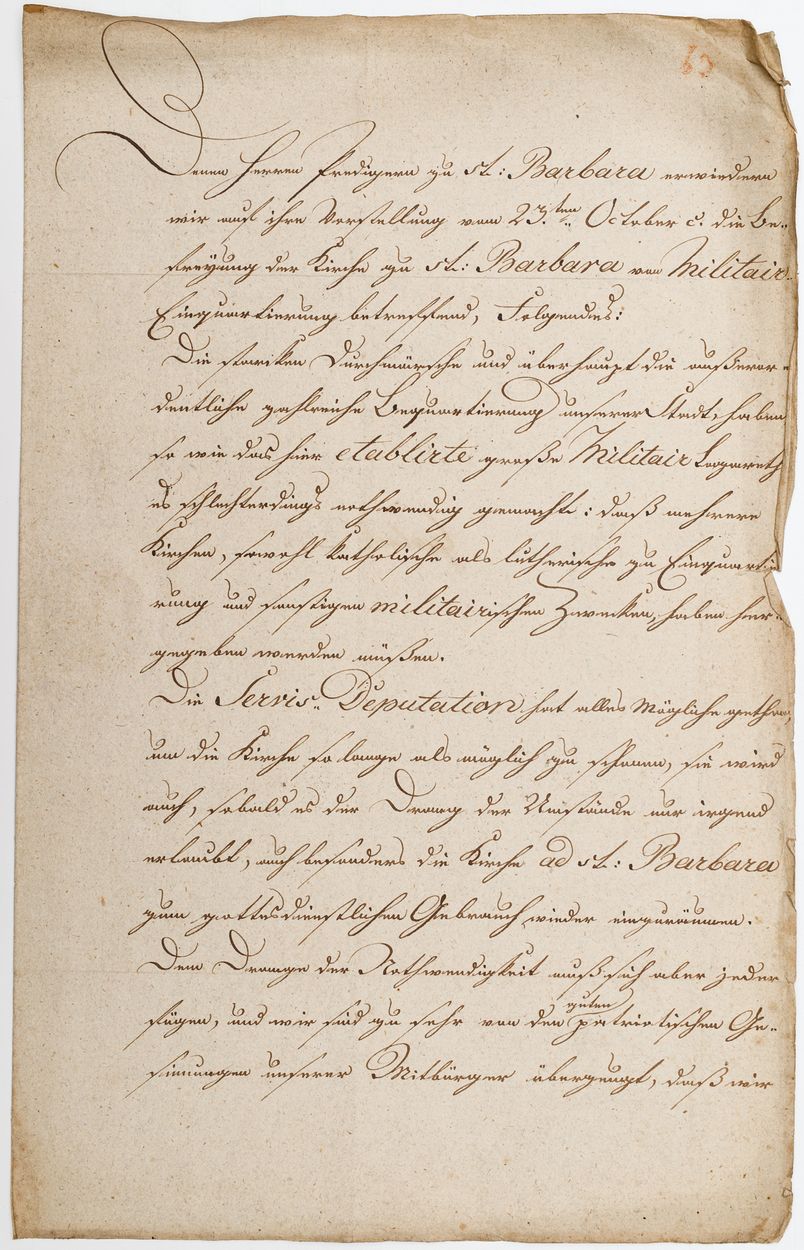 63
Denen Herren Predigern zu St: Barbara erwiedern
wir auf ihre Vorstellung vom 23.ten October c. die Be-
freyung der Kirche zu St: Barbara von Militair-
Einquartierung betreffend, Folgendes:
Die starcken Durchmärsche und überhaupt die außeror-
dentliche zahlreiche Bequartierung unserer Stadt, haben
so wie das hier etablirte große Militair Lazareth
es schlechterdings nothwendig gemacht: daß mehrere
Kirchen, sowohl katholische als lutherische zu Einquarti-
rung und sonstigen militairischen Zwecken, haben her-
gegeben werden müßen.
Die Servis-Deputation hat alles Mögliche gethan,
um die Kirche so lange als möglich zu schonen, sie wird
auch, sobald es der Drang der Umstände nur irgend
erlaubt, auch besonders die Kirche ad St: Barbara
zum gottesdienstlichen Gebrauch wieder einzuräumen.
Dem Drange der Nothwendigkeit muß sich aber jeder
fügen, und wir sind zu sehr von den guten patriotischen Ge-
sinnungen unserer Mitbürger überzeugt, daß wir